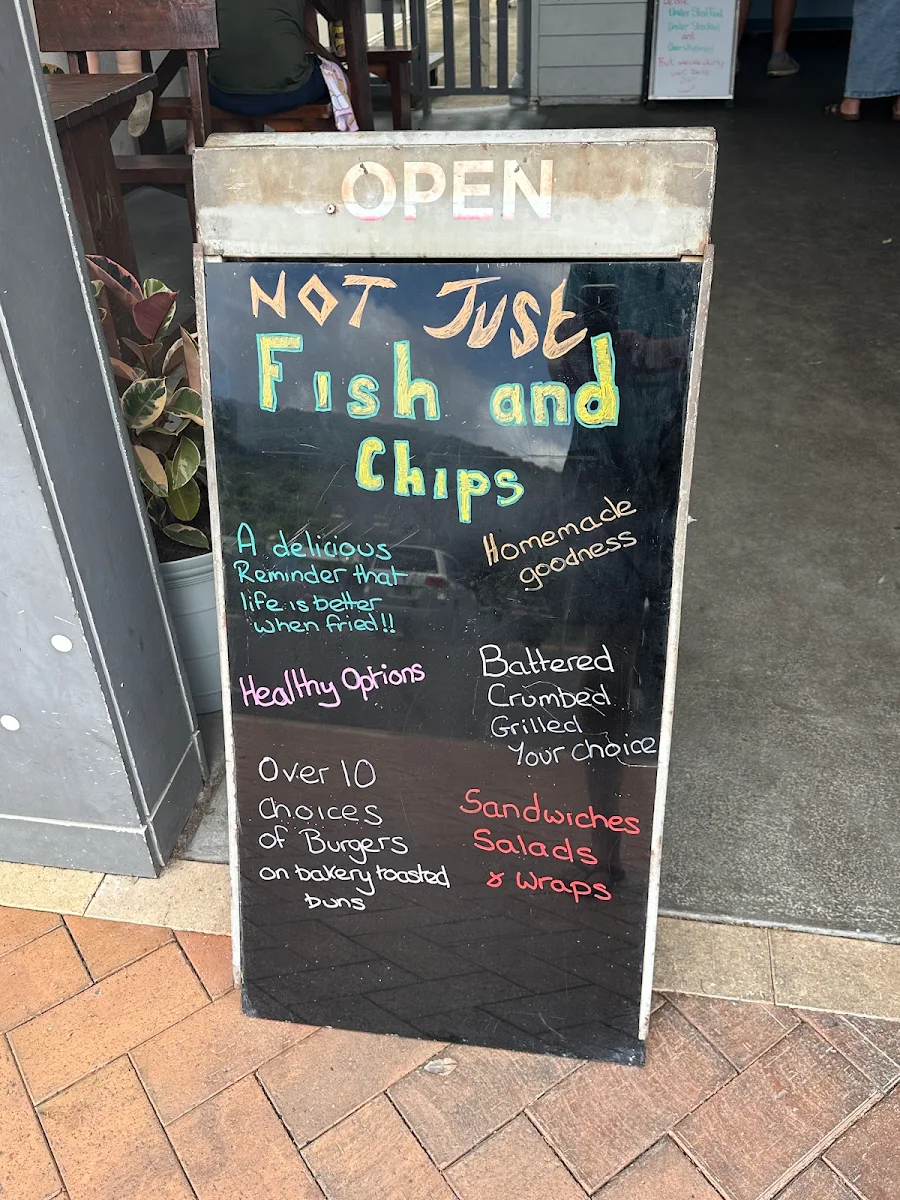 OPEN
NOT Just
Fish and
Chips
A delicious
Reminder that
life is better
when fried!!
Homemade
goodness
Healthy Options
Battered
Crumbed
Grilled
Your choice
Over 10
Choices
of Burgers
on bakery toasted
buns
Sandwiches
Salads
& Wraps
Under Staffed
Under Stocked
and